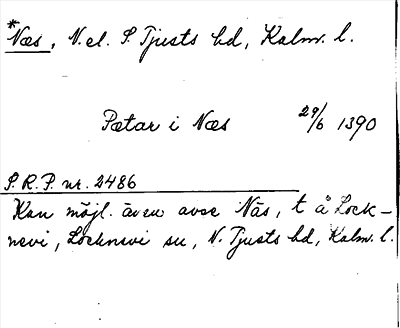 *Næs, N. el. S. Tjusts hd, Kalm. l.
Pætar i Næs 29/6 1390
S. R. P. nr. 2486
Kan möjl. även avse Näs, t å Lock-
nevi, Locknevi sn, N. Tjusts hd, Kalm. l.